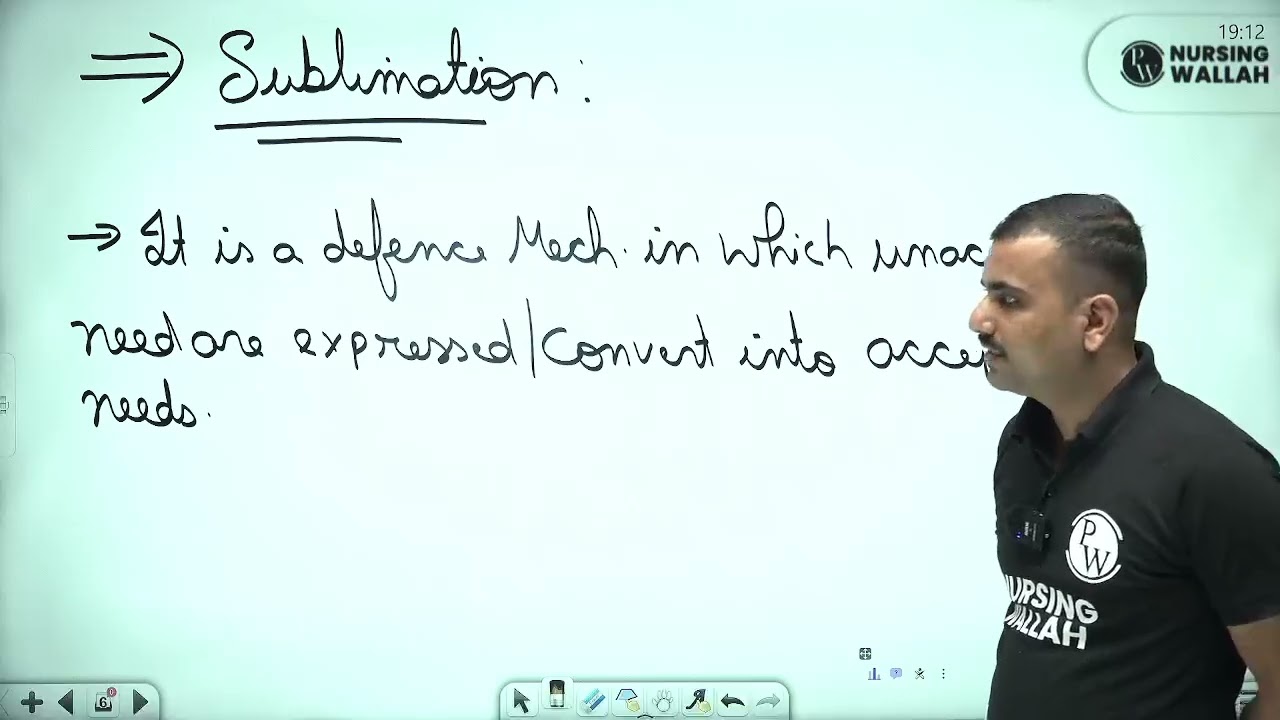 ⇒ Sublimation:
→ It is a defence Mech. in which unac
need are expressed/convert into acce
needs.
19:12
PW
NURSING
WALLAH
6
PW
URSING
WALLAH